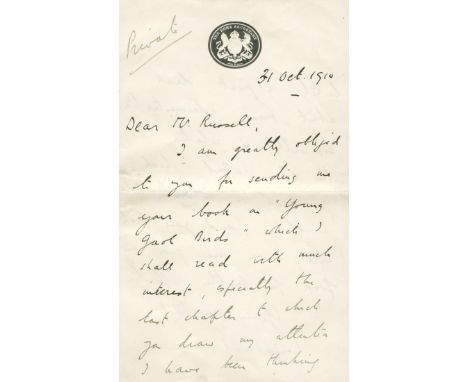 Private
31 Oct. 1910
Dear Mr. Russell,
I am greatly obliged
to you for sending me
your book on "Young
Gaol Birds" which I
shall read with much
interest, especially the
last chapter to which
you draw my attention
I have been thinking